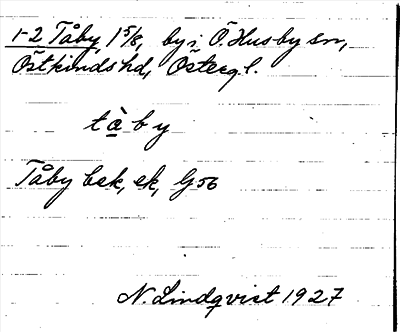 1-2 Tåby, 1 5/8, by i Ö. Husby sn,
Östkinds hd, Östergl.
tà by
Tåby bsk, ek, G56
N. Lindqvist 1927